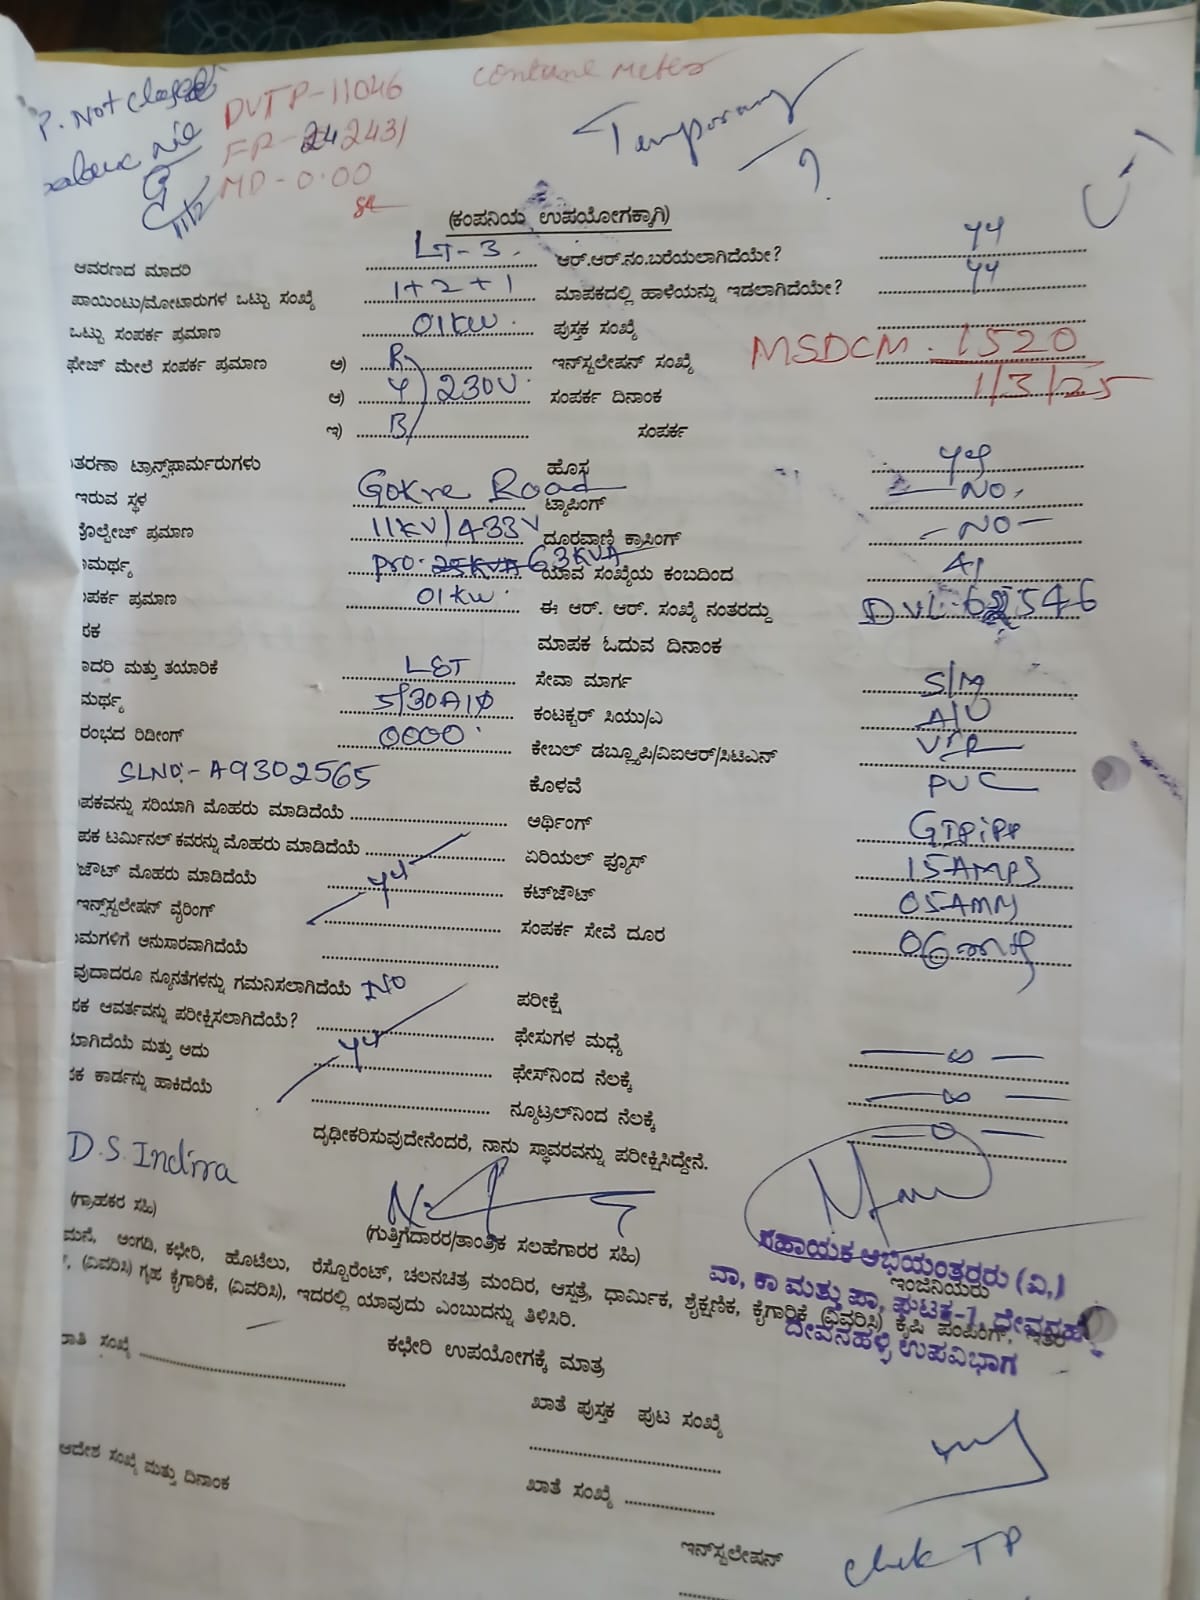 P. Not closed
DVTP-11046
Contune Meter
Temporary
?
FR- 2431
MD-0.00
(ಕಂಪನಿಯ ಉಪಯೋಗಕ್ಕಾಗಿ)
ಆವರಣದ ಮಾದರಿ LT-3 ಆರ್.ಆರ್.ನಂ.ಬರೆಯಲಾಗಿದೆಯೇ? yy
ಪಾಯಿಂಟು/ಮೋಟಾರುಗಳ ಒಟ್ಟು ಸಂಖ್ಯೆ 1+2+1 ಮಾಪಕದಲ್ಲಿ ಹಾಳೆಯನ್ನು ಇಡಲಾಗಿದೆಯೇ? yy
ಒಟ್ಟು ಸಂಪರ್ಕ ಪ್ರಮಾಣ 01KW ಪುಸ್ತಕ ಸಂಖ್ಯೆ
ಫೇಜ್ ಮೇಲೆ ಸಂಪರ್ಕ ಪ್ರಮಾಣ ಅ) R ಇನ್‌ಸ್ಟಲೇಷನ್ ಸಂಖ್ಯೆ MSDCM. 1520
ಆ) Y 230V ಸಂಪರ್ಕ ದಿನಾಂಕ 1/3/25
ಇ) B ಸಂಪರ್ಕ
ತರಣಾ ಟ್ರಾನ್ಸ್‌ಫಾರ್ಮರುಗಳು ಹೊಸ
ಇರುವ ಸ್ಥಳ Gokre Road ಟ್ಯಾಪಿಂಗ್ NO
ವೋಲ್ಟೇಜ್ ಪ್ರಮಾಣ 11KV/433V ದೂರವಾಣಿ ಕ್ರಾಸಿಂಗ್ -NO-
ಾಮರ್ಥ್ಯ pro. 25KVA 63KVA ಯಾವ ಸಂಖ್ಯೆಯ ಕಂಬದಿಂದ
ಪರ್ಕ ಪ್ರಮಾಣ 01KW. ಈ ಆರ್. ಆರ್. ಸಂಖ್ಯೆ ನಂತರದ್ದು
ಪಕ ಮಾಪಕ ಓದುವ ದಿನಾಂಕ
ಾದರಿ ಮತ್ತು ತಯಾರಿಕೆ L&T ಸೇವಾ ಮಾರ್ಗ
ಮರ್ಥ್ಯ 5/30A1Φ ಕಂಟಕ್ಟರ್ ಸಿಯು/ಎ A/U
ರಂಭದ ರಿಡೀಂಗ್ 0000 ಕೇಬಲ್ ಡಬ್ಲ್ಯೂಪಿ/ವಿಐಆರ್/ಸಿಟಿಎನ್ VIR
SLNO:- A9302565 ಕೊಳವೆ PVC
ಪಕವನ್ನು ಸರಿಯಾಗಿ ಮೊಹರು ಮಾಡಿದೆಯೆ ಆರ್ಥಿಂಗ್ GI Pipe
ಪಕ ಟರ್ಮಿನಲ್ ಕವರನ್ನು ಮೊಹರು ಮಾಡಿದೆಯೆ ಏರಿಯಲ್ ಫ್ಯೂಸ್ 15AMPS
ಜೌಟ್ ಮೊಹರು ಮಾಡಿದೆಯೆ yy ಕಟ್‌ಜೌಟ್
ಇನ್ಸ್‌ಸ್ಟಲೇಷನ್ ವೈರಿಂಗ್ ಸಂಪರ್ಕ ಸೇವೆ ದೂರ
ುಮಗಳಿಗೆ ಅನುಸಾರವಾಗಿದೆಯೆ
ವುದಾದರೂ ನ್ಯೂನತೆಗಳನ್ನು ಗಮನಿಸಲಾಗಿದೆಯೆ NO ಪರೀಕ್ಷೆ
ಪಕ ಆವರ್ತವನ್ನು ಪರೀಕ್ಷಿಸಲಾಗಿದೆಯೆ? ಫೇಸುಗಳ ಮಧ್ಯೆ ∞
ಾಗಿದೆಯೆ ಮತ್ತು ಅದು yy ಫೇಸ್‌ನಿಂದ ನೆಲಕ್ಕೆ ∞
ಪಕ ಕಾರ್ಡನ್ನು ಹಾಕಿದೆಯೆ ನ್ಯೂಟ್ರಲ್‌ನಿಂದ ನೆಲಕ್ಕೆ
ದೃಢೀಕರಿಸುವುದೇನೆಂದರೆ, ನಾನು ಸ್ಥಾವರವನ್ನು ಪರೀಕ್ಷಿಸಿದ್ದೇನೆ.
D.S. Indira
(ಗ್ರಾಹಕರ ಸಹಿ) (ಗುತ್ತಿಗೆದಾರರ/ತಾಂತ್ರಿಕ ಸಲಹೆಗಾರರ ಸಹಿ) ಇಂಜಿನಿಯರು
ಸಹಾಯಕ ಅಭಿಯಂತರರು (ವಿ,)
ವಾ, ಕಾ ಮತ್ತು ಪಾ, ಘಟಕ-1, ದೇವನಹಳ್ಳಿ
ದೇವನಹಳ್ಳಿ ಉಪವಿಭಾಗ
ಮನೆ, ಅಂಗಡಿ, ಕಛೇರಿ, ಹೊಟೆಲು, ರೆಸ್ಟೊರೆಂಟ್, ಚಲನಚಿತ್ರ ಮಂದಿರ, ಆಸ್ಪತ್ರೆ, ಧಾರ್ಮಿಕ, ಶೈಕ್ಷಣಿಕ, ಕೈಗಾರಿಕೆ (ವಿವರಿಸಿ) ಕೃಷಿ ಪಂಪಿಂಗ್, ಇತರೆ
(ವಿವರಿಸಿ) ಗೃಹ ಕೈಗಾರಿಕೆ, (ವಿವರಿಸಿ), ಇದರಲ್ಲಿ ಯಾವುದು ಎಂಬುದನ್ನು ತಿಳಿಸಿರಿ.
ಕಛೇರಿ ಉಪಯೋಗಕ್ಕೆ ಮಾತ್ರ
ಾತಿ ಸಂಖ್ಯೆ ಖಾತೆ ಪುಸ್ತಕ ಪುಟ ಸಂಖ್ಯೆ
ಆದೇಶ ಸಂಖ್ಯೆ ಮತ್ತು ದಿನಾಂಕ ಖಾತೆ ಸಂಖ್ಯೆ
ಇನ್‌ಸ್ಟಲೇಷನ್ chek TP